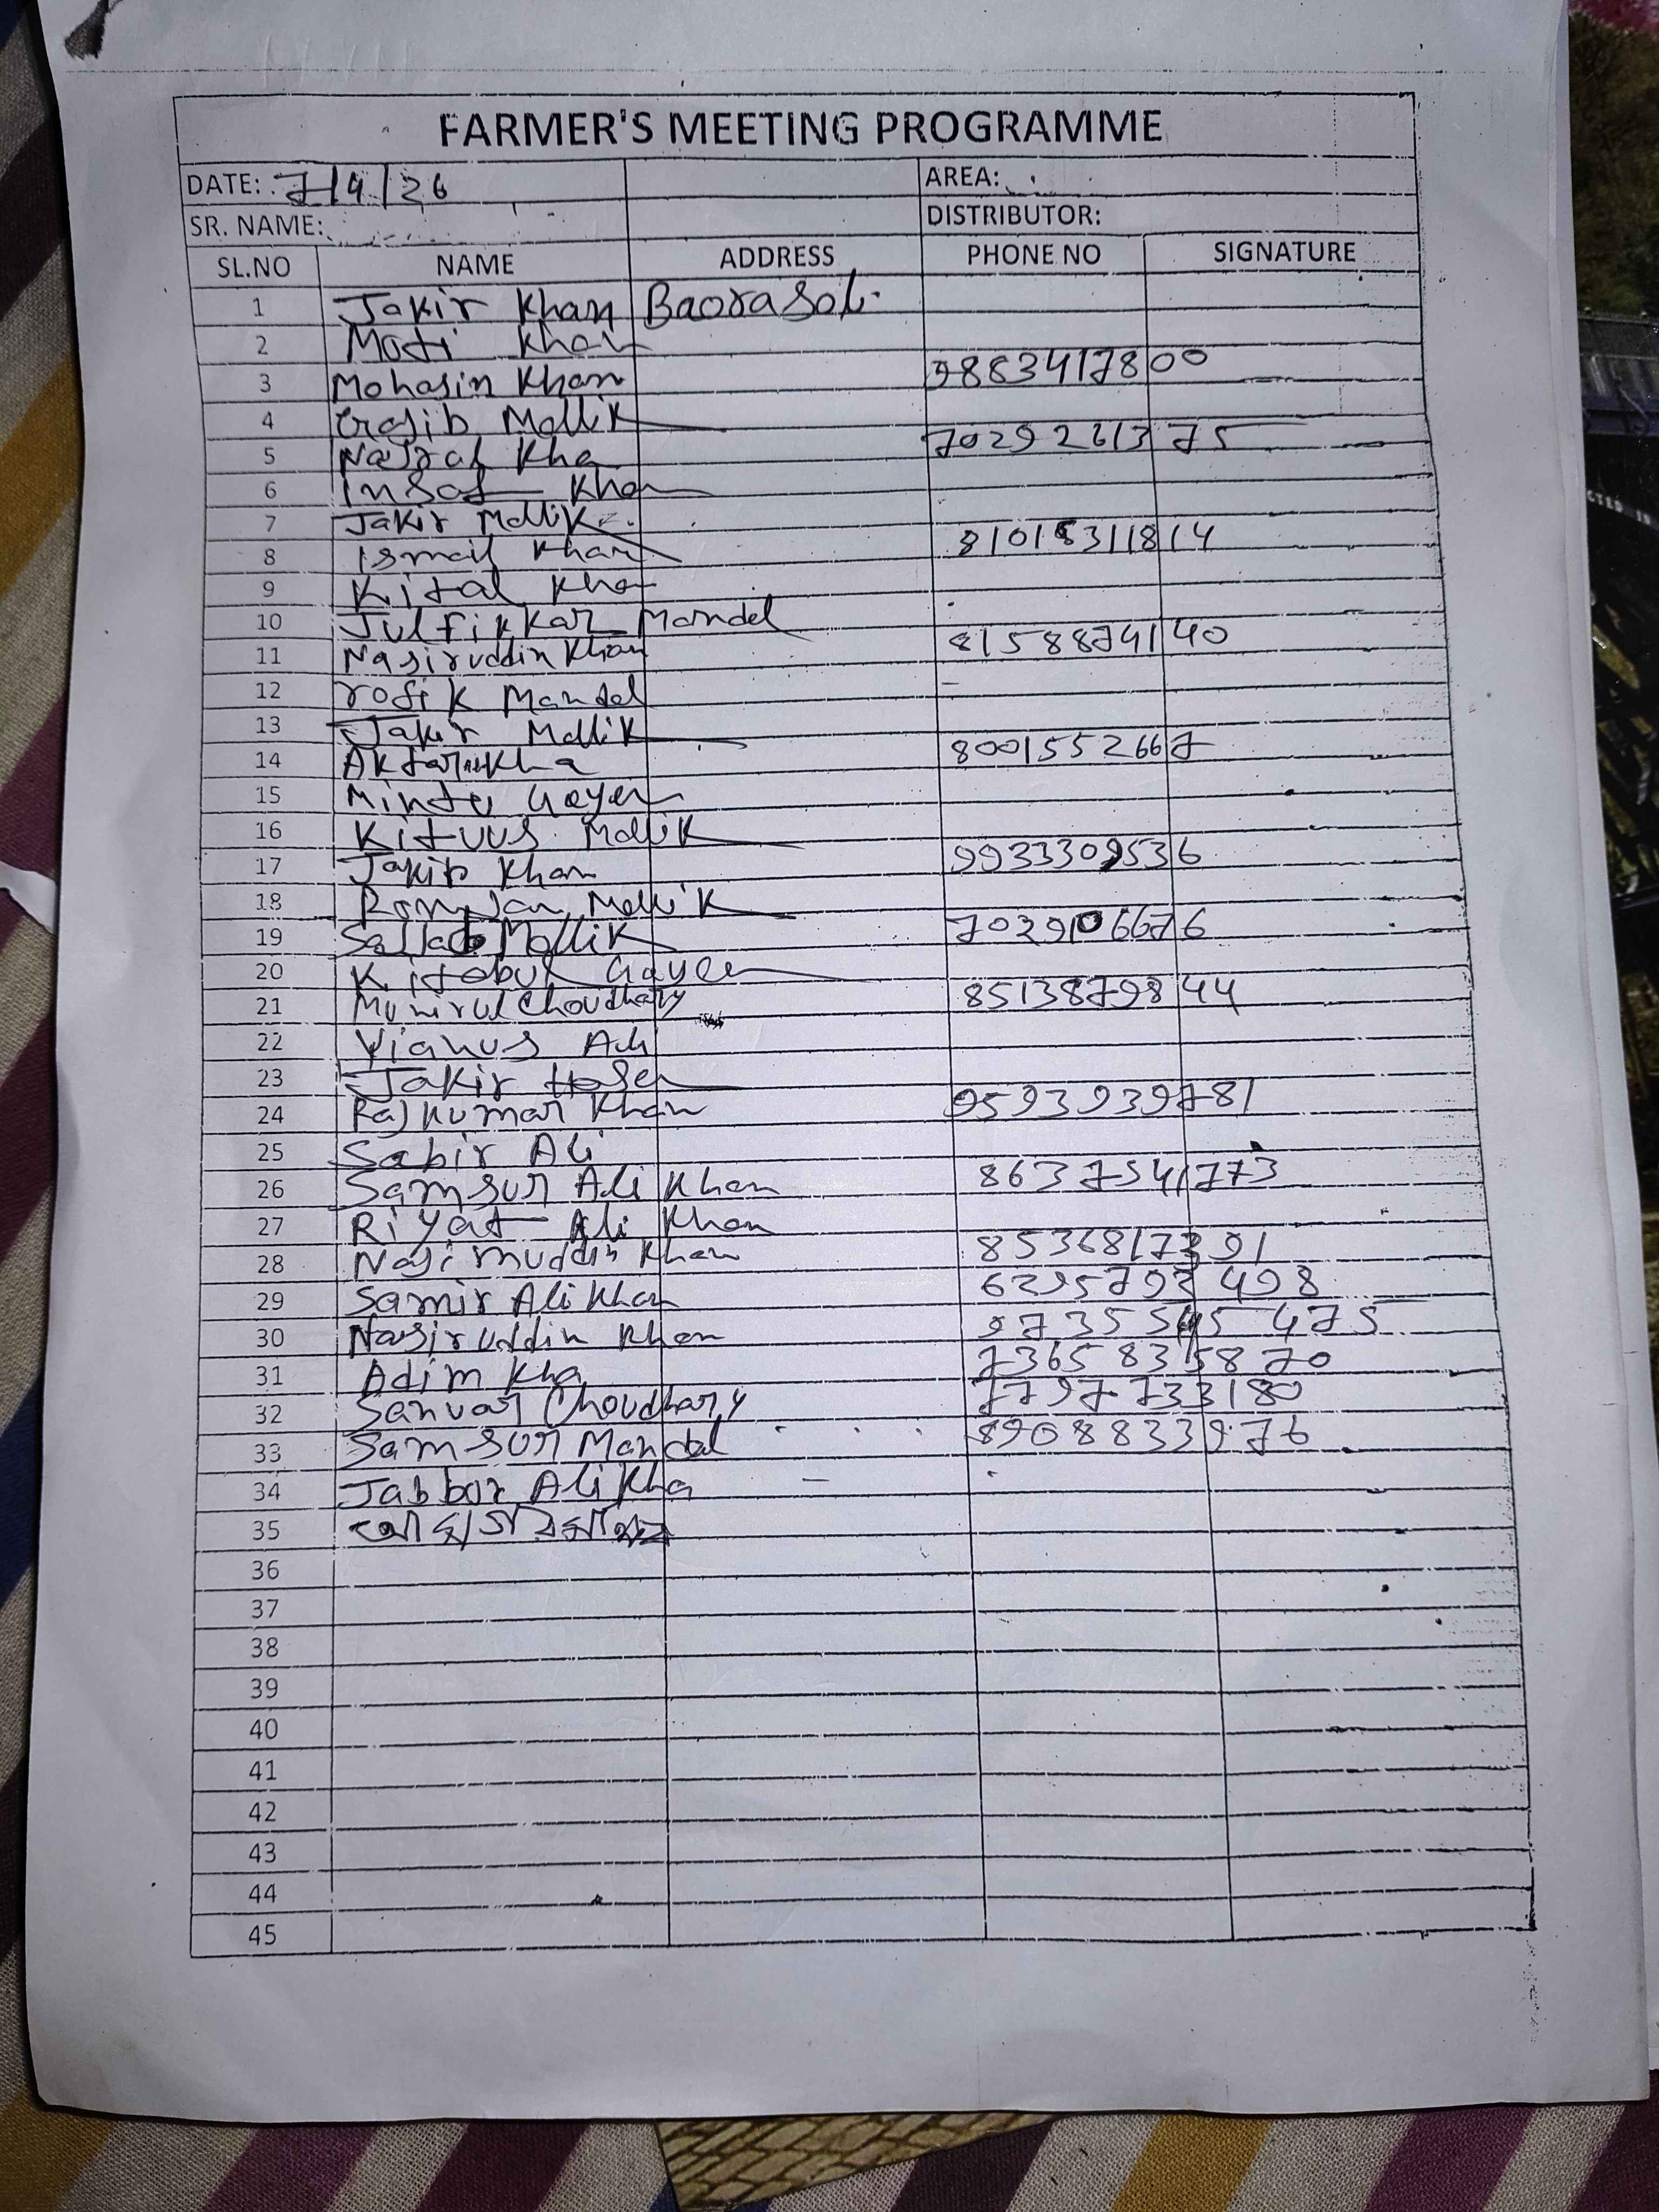 FARMER'S MEETING PROGRAMME
DATE: 7/4/26 AREA:
SR. NAME: DISTRIBUTOR:
SL.NO NAME ADDRESS PHONE NO SIGNATURE
1 Jakir Khan Baorasoli
2 Moti Khan
3 Mohasin Khan 9883417800
4 Mollik
5 Kha 7029261375
6 Insaf Khan
7 Jakir Mollik
8 Ismail Khan 8101831814
9 Kital Kha
10 Julfikkar Mondel
11 Nasiruddin Khan 8158874140
12 rofik Mandel
13 Jakir Mollik
14 Aktar Kha 8001552667
15 Mintu Gayen
16 Mollik
17 Jakir Khan 9933309536
18 Romjan Mollik
19 Mollik 7029106676
20 Kitabul Gayen
21 Munirul Choudhary 8513879844
22 Ali
23 Jakir Hosen
24 Rajkumar Khan 9593939781
25 Sabir Ali
26 Samsur Ali Khan 8637541773
27 Riyat Ali Khan
28 Najimuddin Khan 8536817391
29 Samir Ali Khan 6295792498
30 Nasiruddin Khan 9735545475
31 Adim Kha 7365835870
32 Sanuar Choudhary 7797733180
33 Samsur Mandal 8908833976
34 Jabbar Ali Kha
35
36
37
38
39
40
41
42
43
44
45